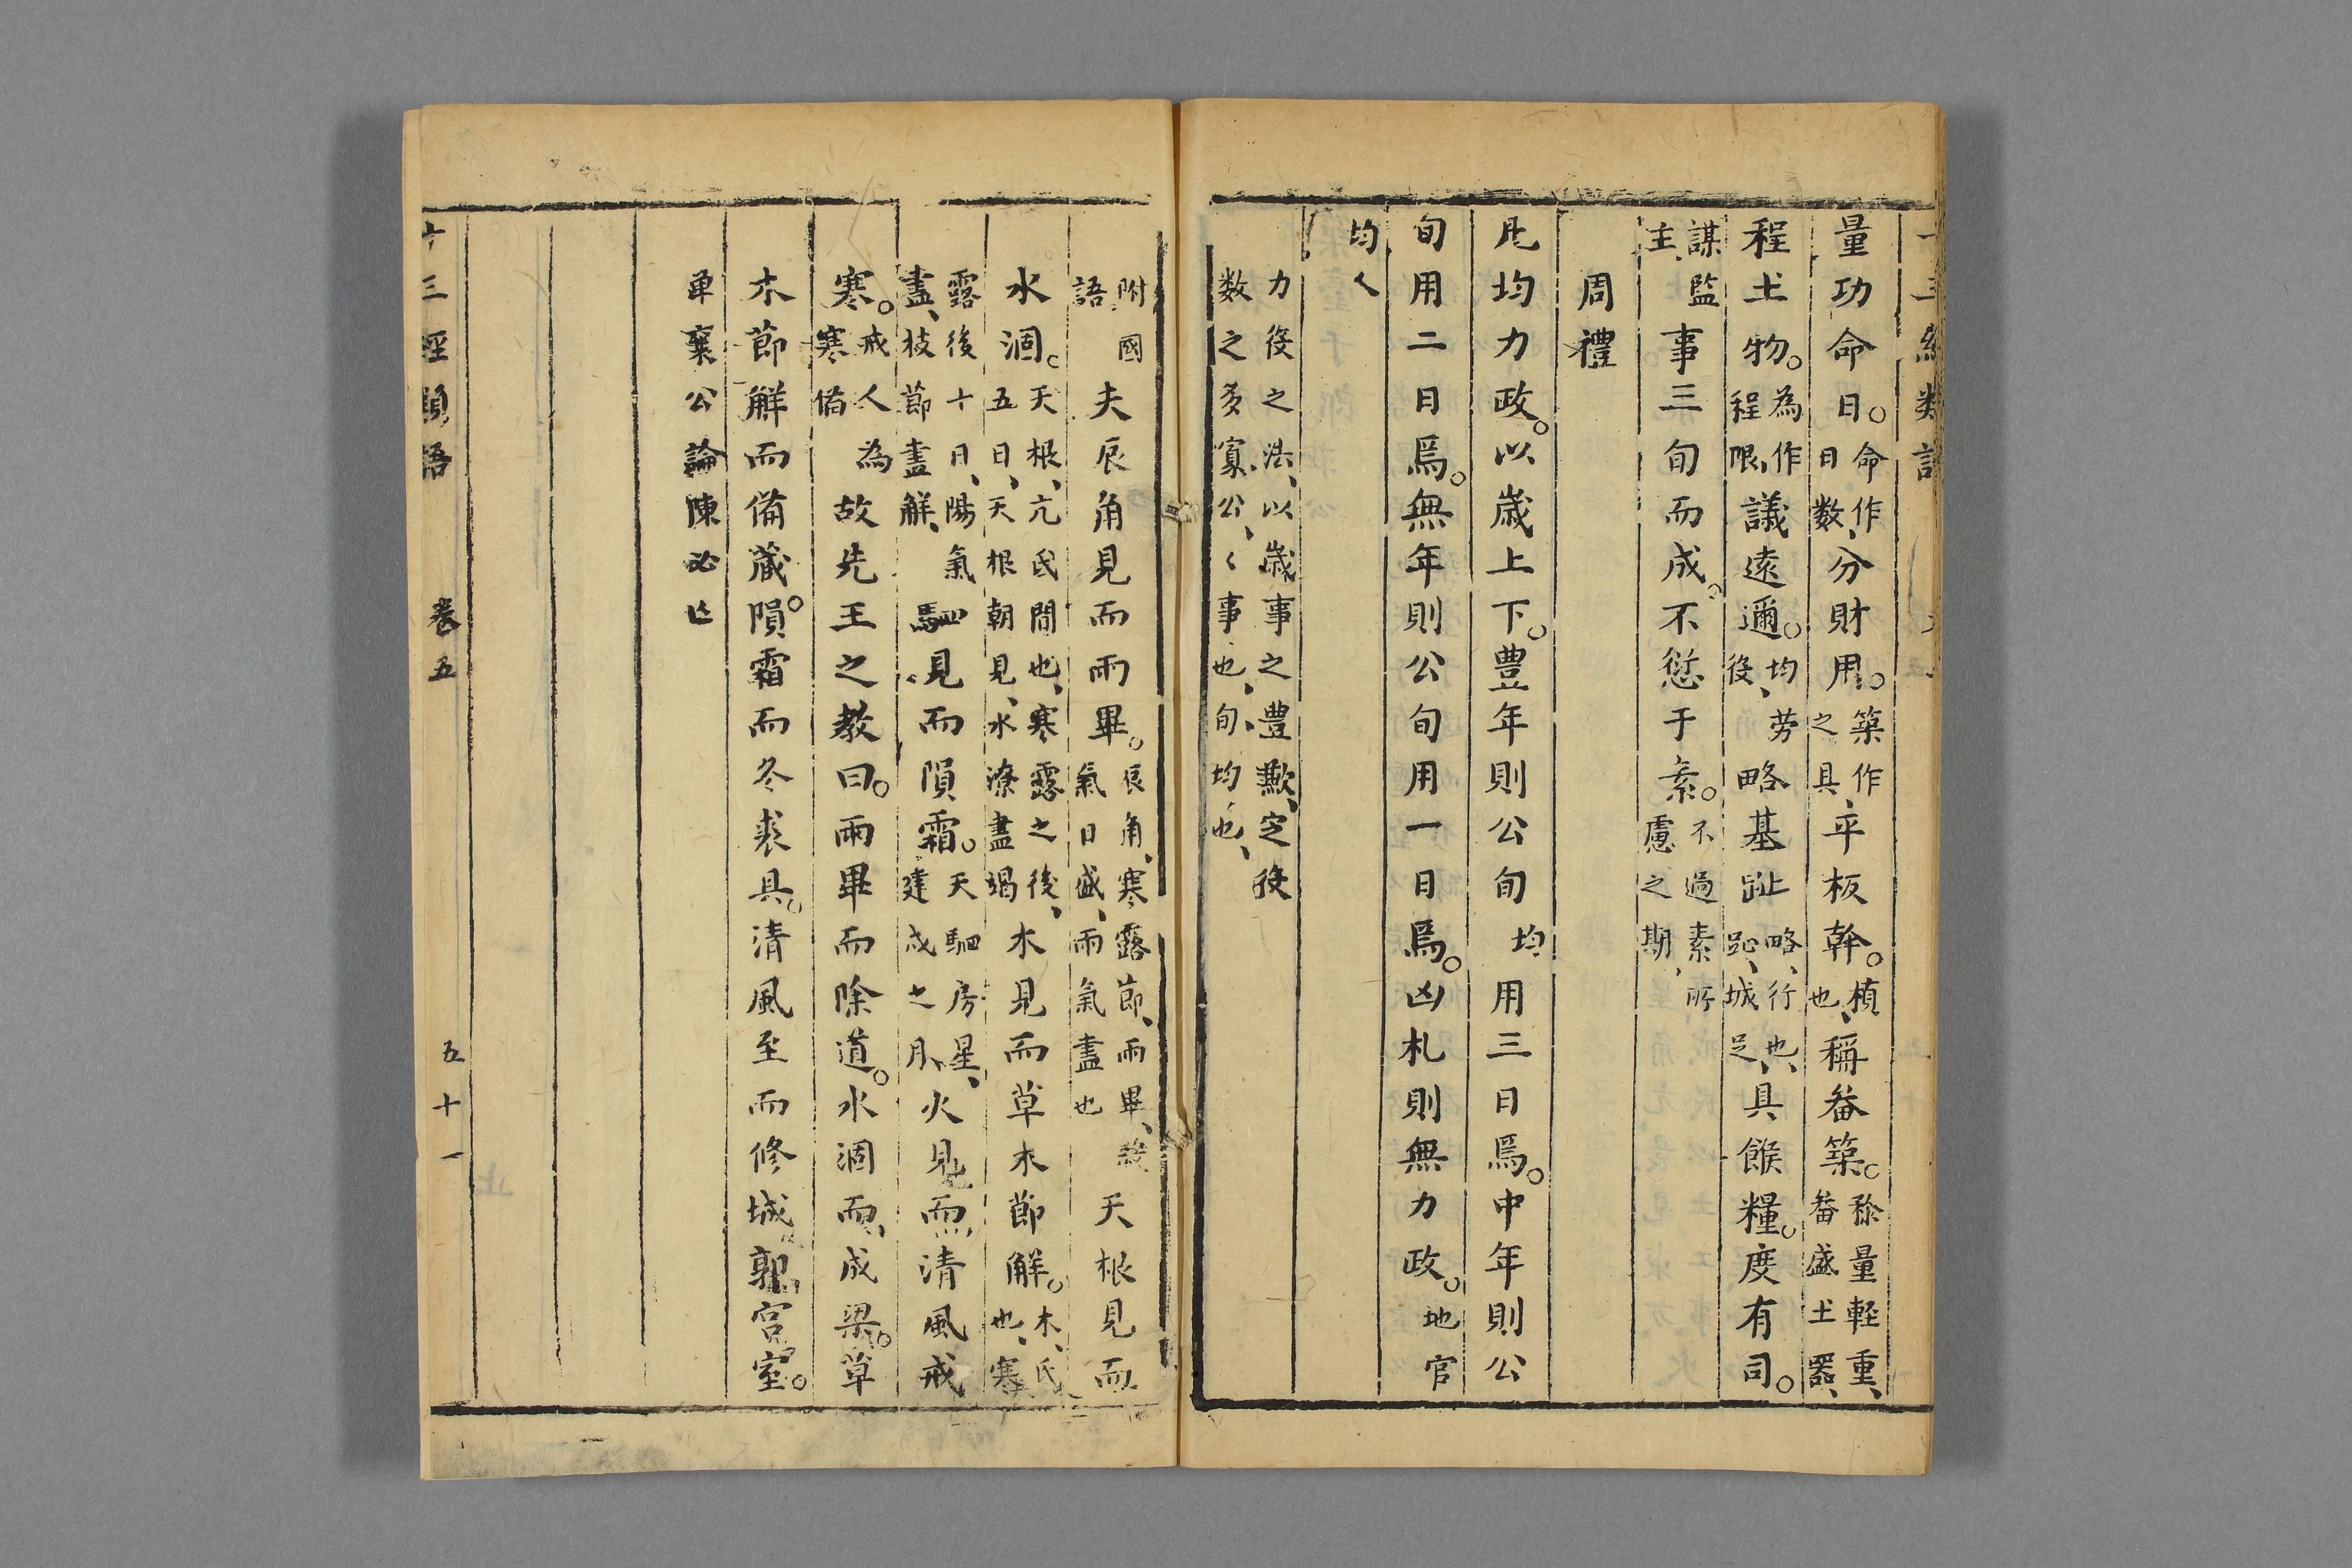 量功命日。命作日数、分財用。築作之具、平板幹。楨也、稱畚築。稱量輕重、畚盛土器、
程土物。為作程限、議遠邇。均劳役、略基趾略、行也、趾、城足、具餱糧。度有司。
謀監主、事三旬而成。不愆于素。不過素所慮之期、
周禮
凡均力政。以歲上下。豊年則公旬均用三日焉。中年則公
旬用二日焉。無年則公旬用一日焉。凶札則無力政。地官
均人
力役之法、以歲事之豊歉、定役数之多寡、公、〻事也、旬、均也、
附國語夫辰角見而雨畢。辰角、寒露節、雨畢、殺氣日盛、雨氣盡也天根見而
水涸。天根、亢氐間也、寒露之後五日、天根朝見、水潦盡竭、本見而草木節解。本、氐也、寒
露後十日、陽氣盡、枝節盡解、駟見而隕霜。天駟房星、建戌之月、火見而清風戒
寒。戒人為寒備故先王之教曰。雨畢而除道。水涸而成梁。草
木節解而備藏。隕霜而冬裘具。清風至而修城郭宮室。
單襄公論陳必亡
十三經類語 卷五 五十一